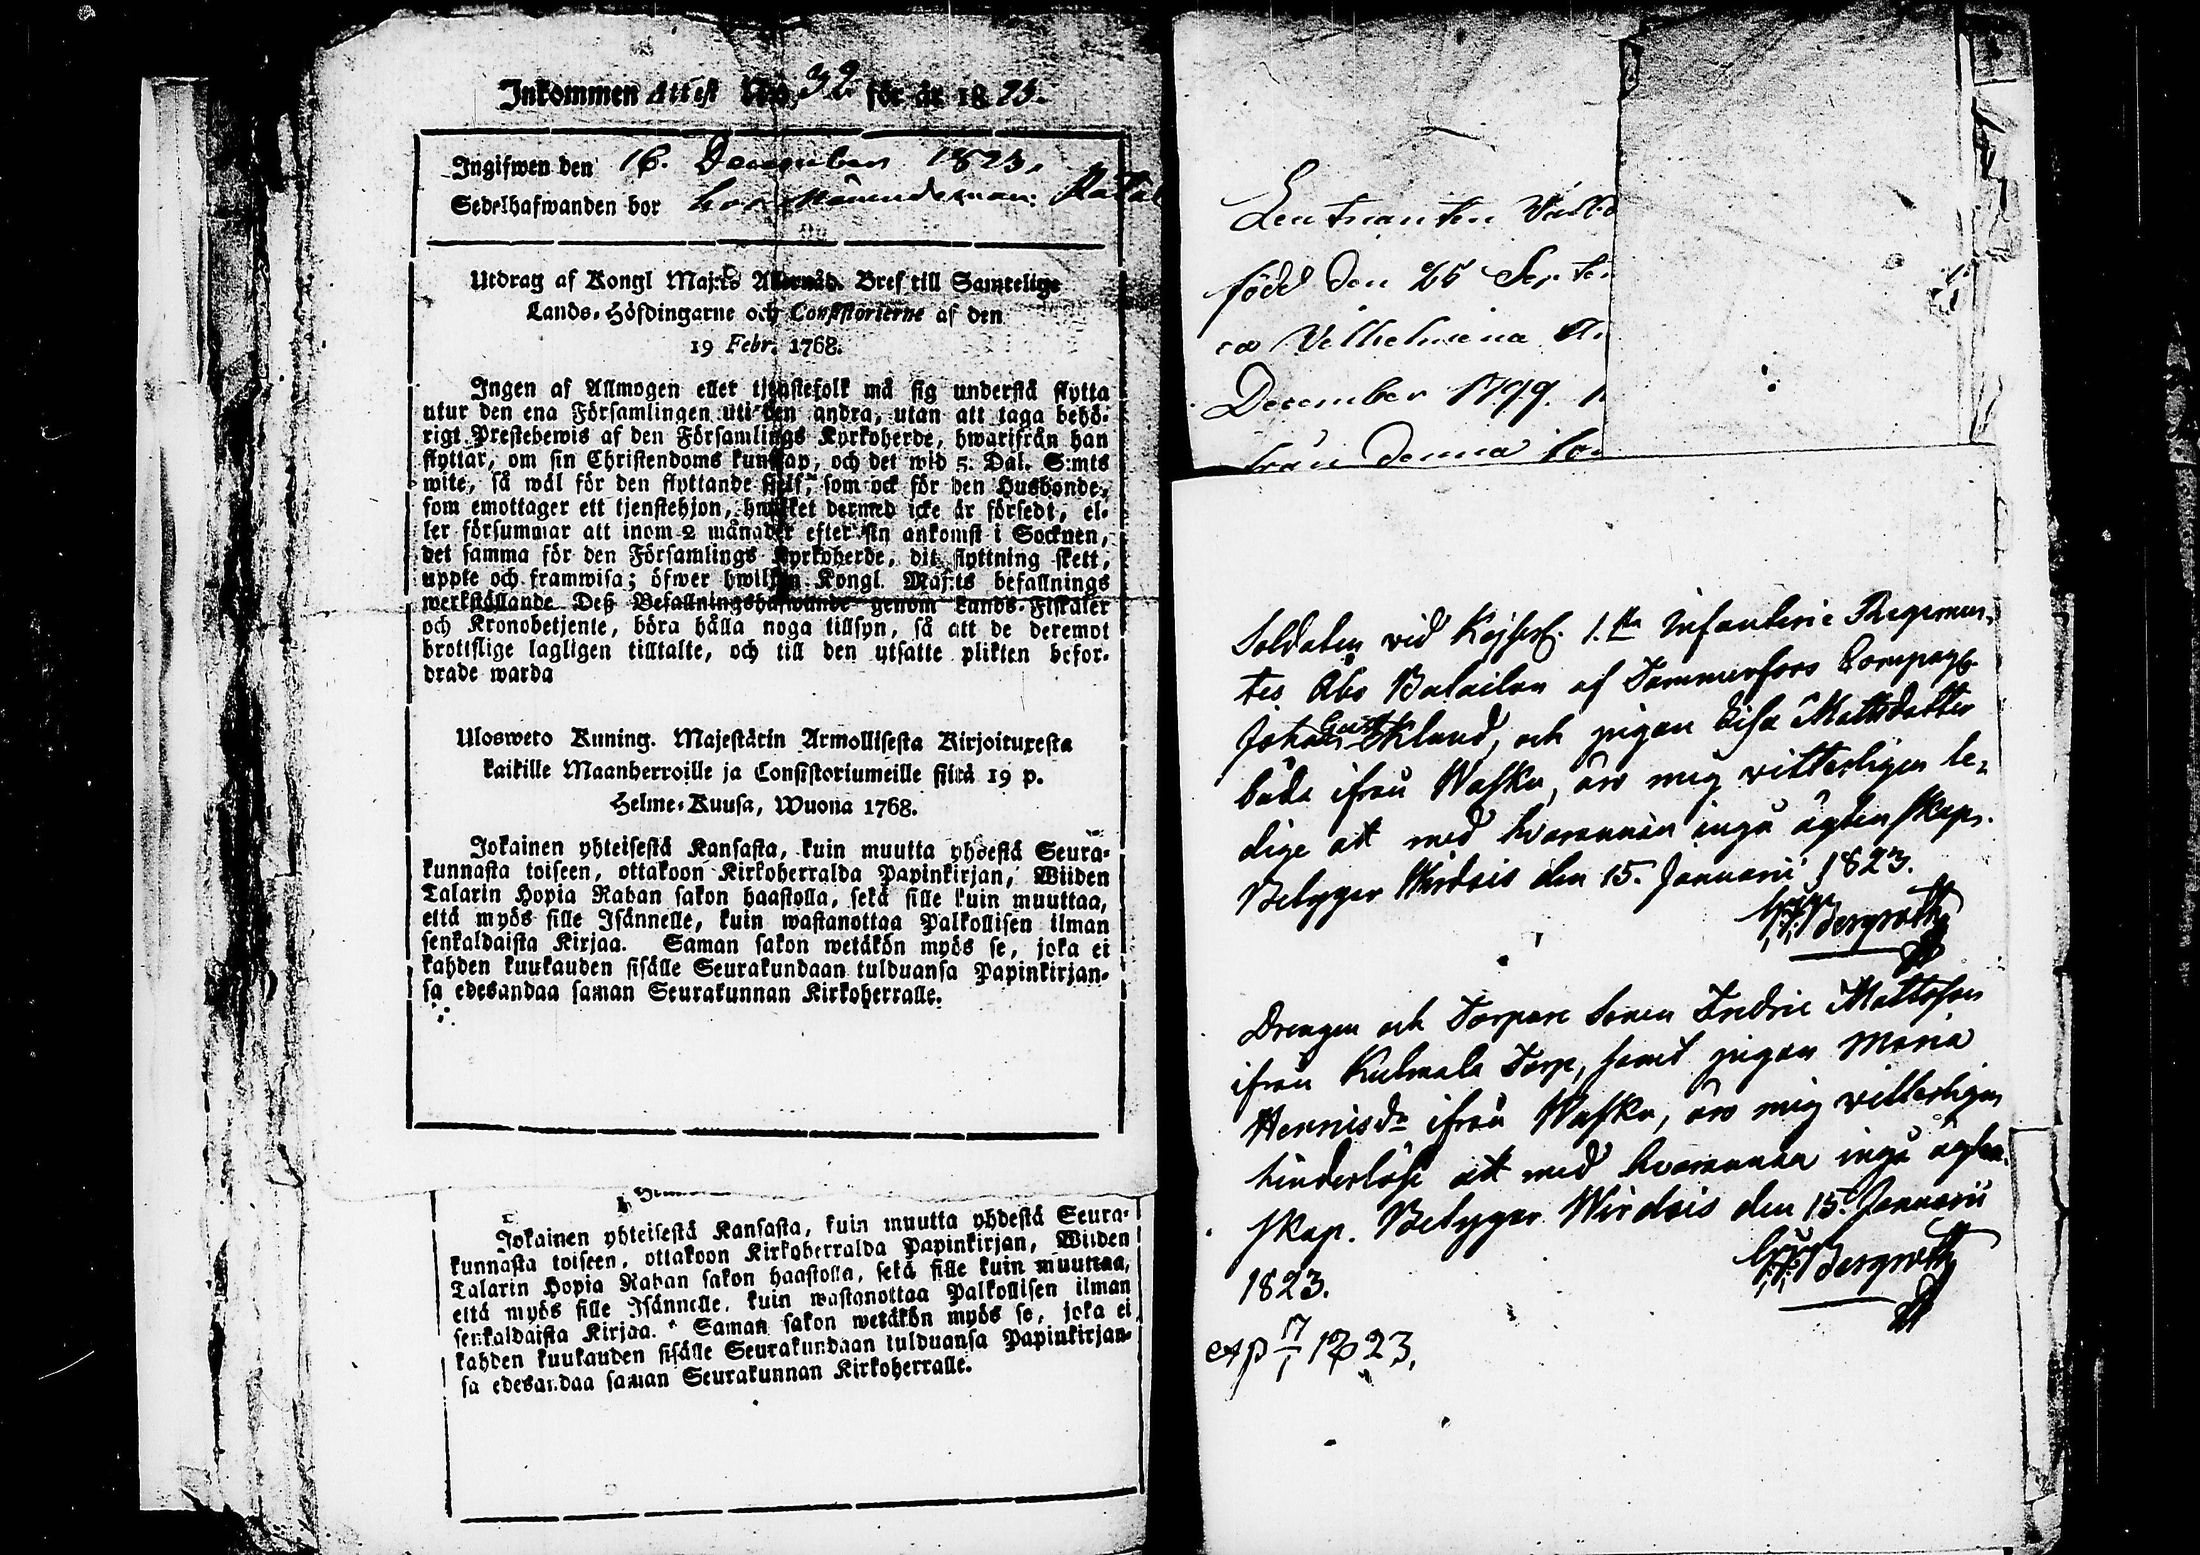 Inkommen Attest No 32 för år 1823.
Ingifwen den 16. December 1823.
Sedelhafwanden bor hos
Utdrag af Kongl Maj:ts Allernåd. Bref till Samtelige
Lands-Höfdingarne och Consistorierne af den
19 Febr. 1768.
Ingen af Allmogen eller tjenstefolk må sig understå flytta
utur den ena Församlingen uti den andra, utan att taga behö-
rigt Prestebewis af den Församlings Kyrkoherde, hwarifrån han
flyttar, om sin Christendoms kunskap, och det wid 5. Dal. S:mts
wite, så wäl för den flyttande sjelf, som ock för den Husbonde,
som emottager ett tjenstehjon, hwilket dermed icke är försedt, el-
ler försummar att inom 2 månader efter sin ankomst i Socknen,
det samma för den Församlings Kyrkoherde, dit flyttning skett,
uppte och framwisa; öfwer hwilken Kongl. Maj:ts befallnings
werkställande Deß Befallningshafwande genom Lands-Fiskaler
och Kronobetjente, böra hålla noga tillsyn, så att de deremot
brottslige lagligen tilltalte, och till den utsatte plikten befor-
drade warda
Ulosweto Kuning. Majestätin Armollisesta Kirjoituxesta
kaikille Maanherroille ja Consistoriumeille siitä 19 p.
Helme-Kuusa, Wuona 1768.
Jokainen yhteisestä Kansasta, kuin muutta yhdestä Seura-
kunnasta toiseen, ottakoon Kirkoherralda Papinkirjan, Wiiden
Talarin Hopia Rahan sakon haastolla, sekä sille kuin muuttaa,
että myös sille Isännelle, kuin wastanottaa Palkollisen ilman
senkaldaista Kirjaa. Saman sakon wetäkön myös se, joka ei
kahden kuukauden sisälle Seurakundaan tulduansa Papinkirjan-
sa edesandaa saman Seurakunnan Kirkoherralle.
Jokainen yhteisestä Kansasta, kuin muutta yhdestä Seura-
kunnasta toiseen, ottakoon Kirkoherralda Papinkirjan, Wiiden
Talarin Hopia Rahan sakon haastolla, sekä sille kuin muuttaa,
että myös sille Isännelle, kuin wastanottaa Palkollisen ilman
senkaldaista Kirjaa. Saman sakon wetäkön myös se, joka ei
kahden kuukauden sisälle Seurakundaan tulduansa Papinkirjan-
sa edesandaa saman Seurakunnan Kirkoherralle.
Leutnanten
född den 25 Septe
Vilhelmina
December 1799.
från denna
Soldaten vid Kejserl. 1.sta Infanterie Regemen-
tes Åbo Batailon af Tammerfors Compagn.
Johan Gust. Eklund, och pigan Lisa Mattsdotter
båda ifrån Wasku, äro mig vitterligen le-
dige att med hvarannan ingå ägtenskap.
Betygar Wirdois den 15. Januarii 1823.
Bergroth
Drengen och Torpare Sonen Fredric Mattsson
ifrån Kulmala Torp, samt pigan Maria
Hennisdr ifrån Wasku, äro mig vitterligen
hinderlöse att med hvarannan ingå ägten-
skap. Betygar Wirdois den 15. Januarii
1823.
Bergroth
exp 17/1 1823.